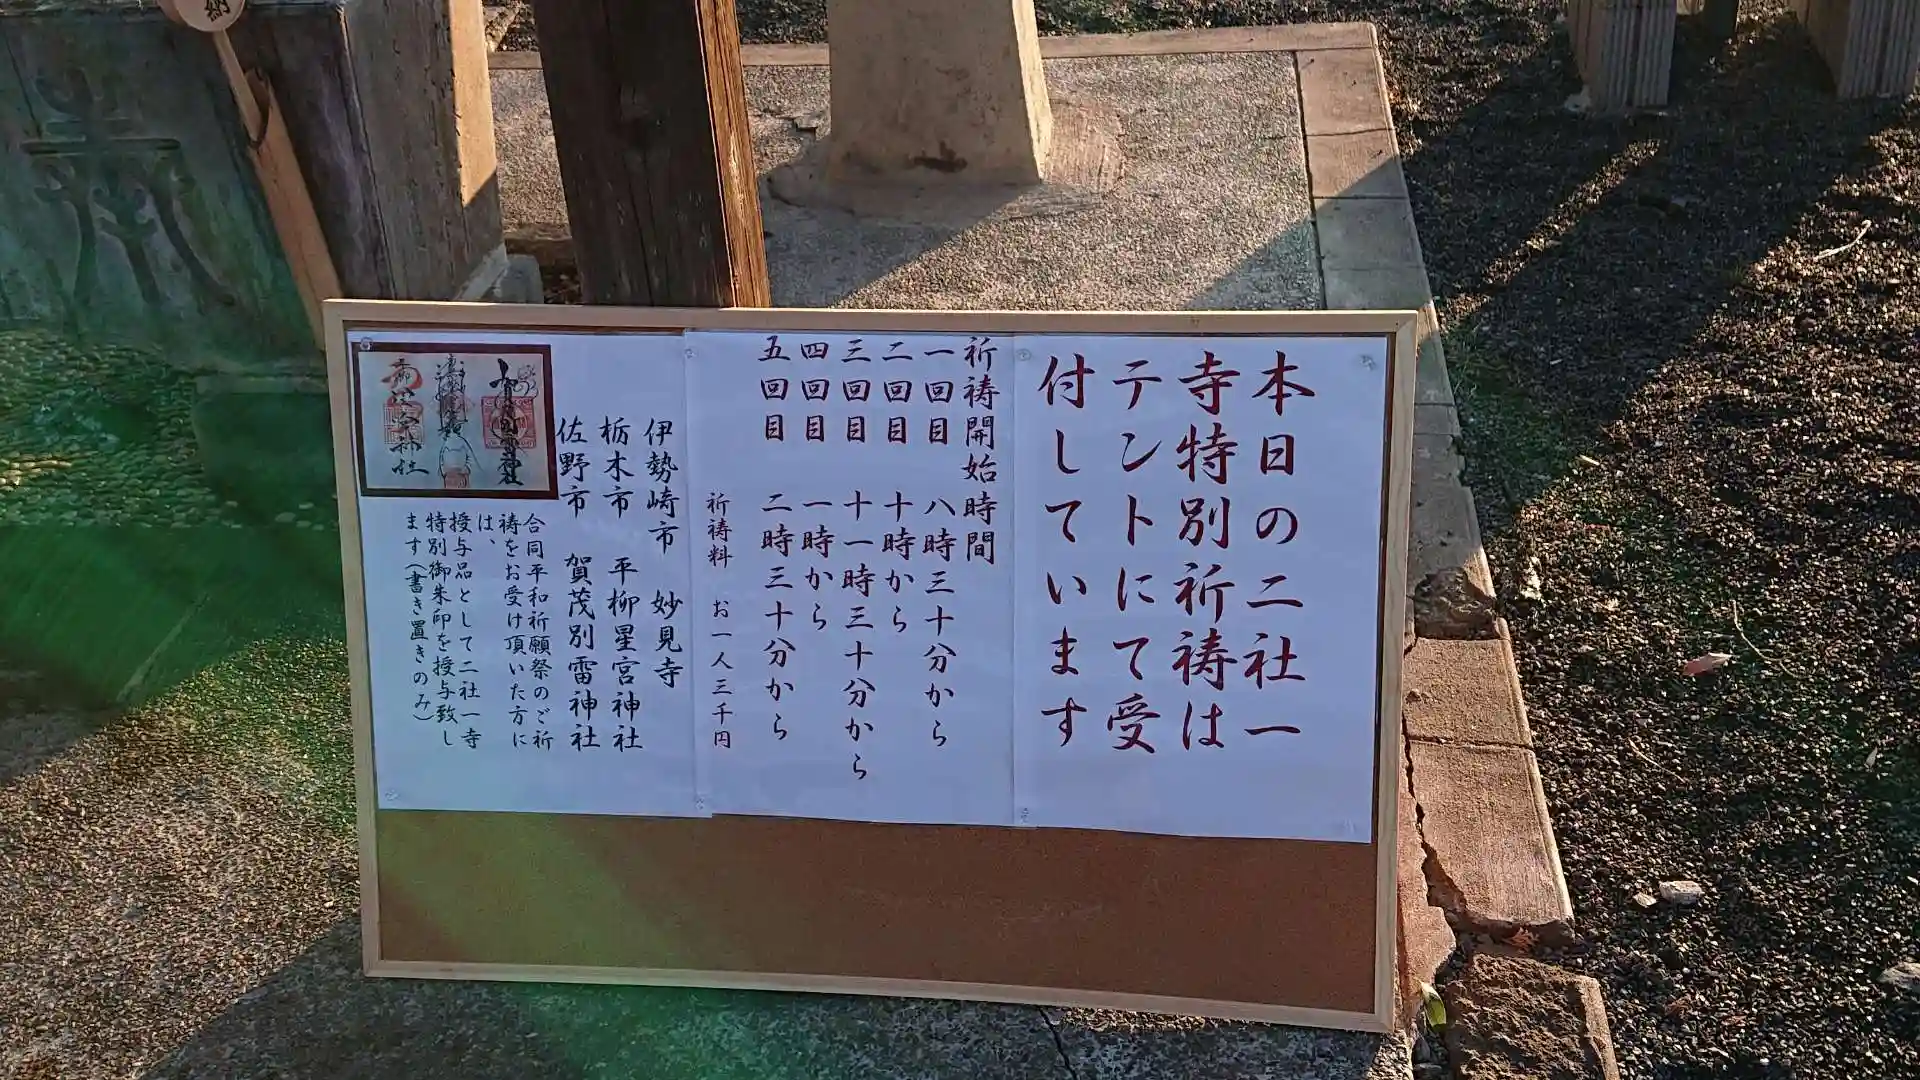 本日の二社一
寺特別祈祷は
テントにて受
付しています
祈祷開始時間
一回目 八時三十分から
二回目 十時から
三回目 十一時三十分から
四回目 一時から
五回目 二時三十分から
祈祷料 お一人三千円
伊勢崎市 妙見寺
栃木市 平柳星宮神社
佐野市 賀茂別雷神社
合同平和祈願祭のご祈
祷をお受け頂いた方に
は、
授与品として二社一寺
特別御朱印を授与致し
ます（書き置きのみ）
納